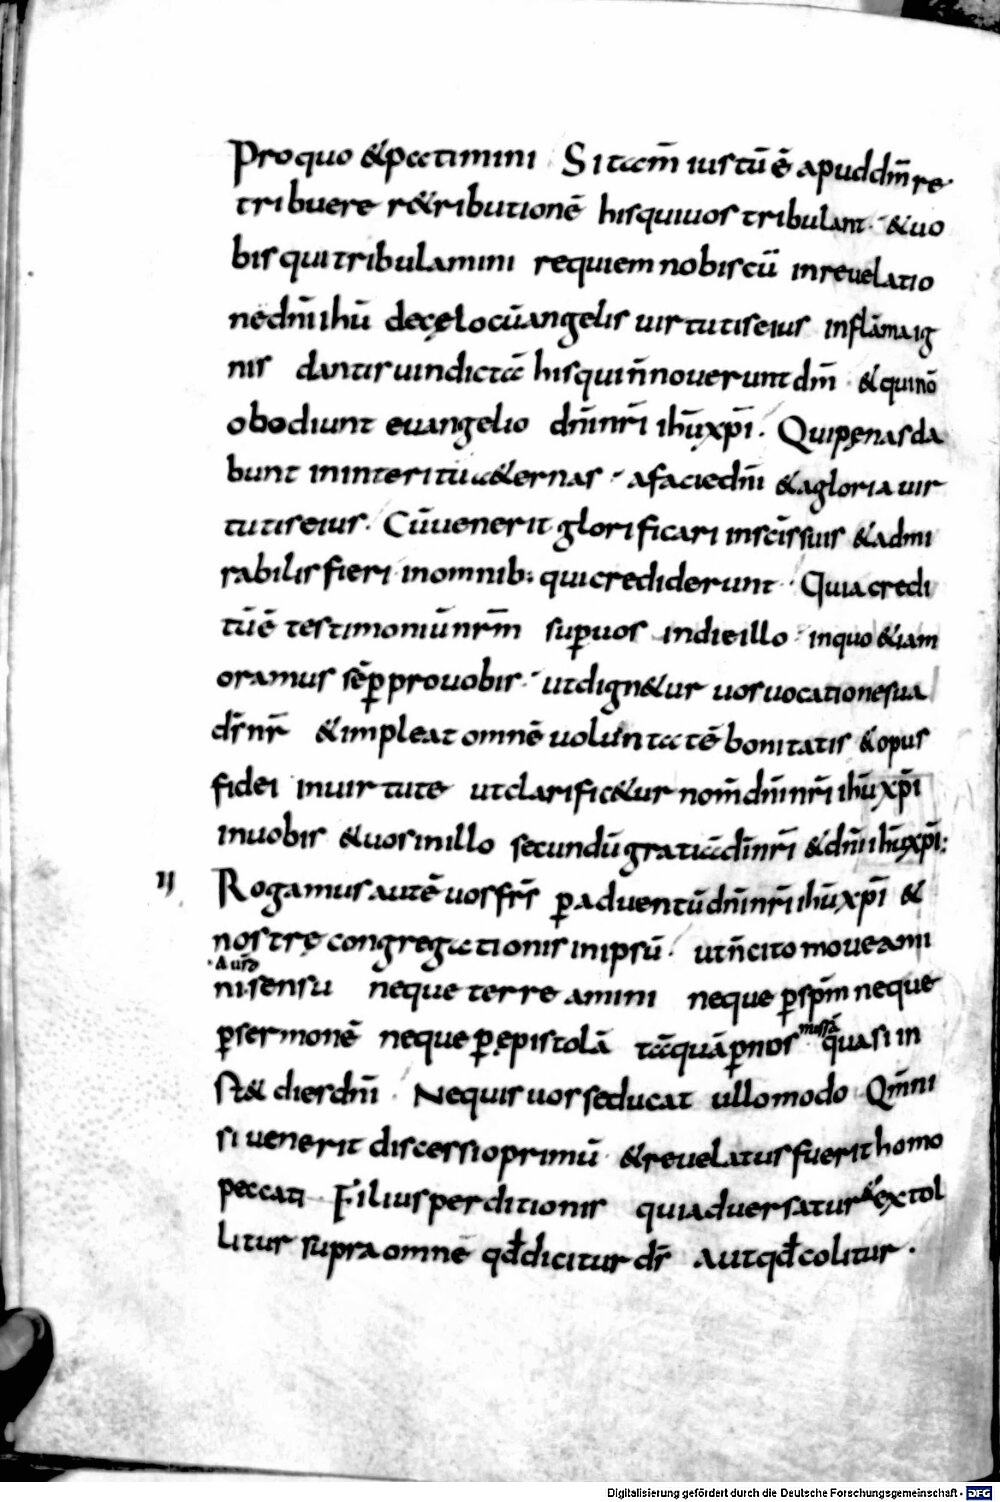 Pro quo & patimini Si tam̄ iustū ē apud dm̄ re
tribuere r&ributionē his qui uos tribulant · & uo
bis qui tribulamini requiem nobiscū in reuelatio
ne dn̄i ihū de cęlo cū angelis uirtutis eius in flāma ig
nis dantis uindicta his qui n̄ nouerunt dm̄ · & qui nō
obodiunt euangelio dn̄i nr̄i ihū xp̄i · Qui pęnas da
bunt in interitu a&ernas · a facie dn̄i & a gloria uir
tutis eius · Cū uenerit glorificari in sc̄is suis & admi
rabilis fieri in omnib; qui crediderunt · Quia credi
tū ē testimoniū nr̄m sup uos in die illo · in quo & iam
oramus sēp pro uobis · ut dign&ur uos uocatione sua
dr̄ nr̄ & impleat omnē uoluntatē bonitatis & opus
fidei in uirtute ut clarific&ur nom̄ dn̄i nr̄i ihū xp̄i
in uobis & uos in illo secundū gratiā dī nr̄i & dn̄i ihū xp̄i:
II Rogamus autē uos fr̄s p aduentū dn̄i nr̄i ihū xp̄i &
nostrę congregationis in ipsū · ut n̄ cito moueami
· A ur̄o
ni sensu neque terreamini neque p sp̄m neque
p sermonē neque p epistolā tāquā p nos missā quasi in
st& dies dn̄i · Ne quis uos seducat ullo modo Qm̄ ni
si uenerit discessio primū & reuelatus fuerit homo
peccati · Filius perditionis qui aduersatur & extol
litur supra omnē qđ dicitur dr̄ aut qđ colitur ·
Digitalisierung gefördert durch die Deutsche Forschungsgemeinschaft - DFG